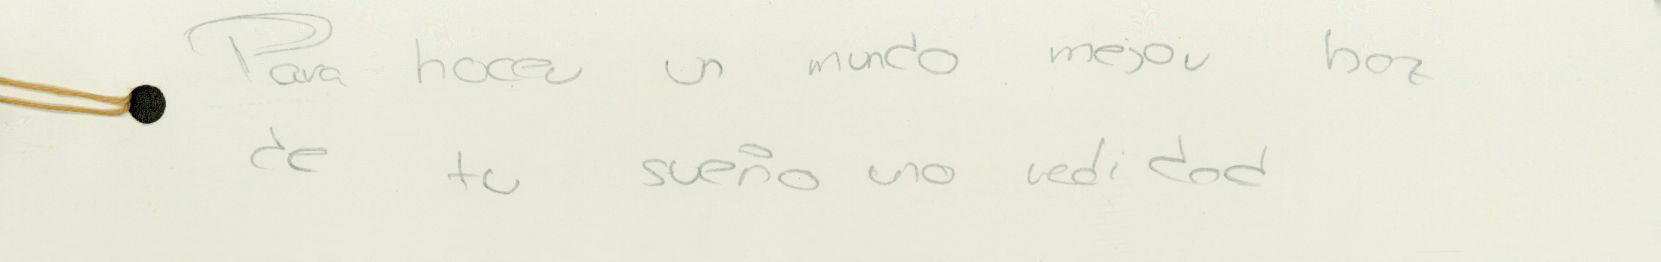 Para hacer un mundo mejor haz
de tu sueño una redidad